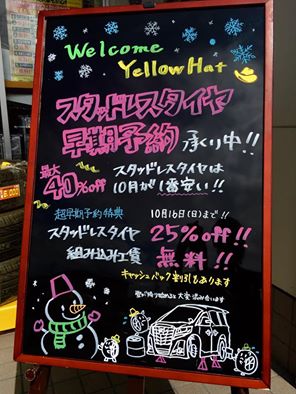 Welcome
Yellow Hat
スタッドレスタイヤ
早期予約 承り中!!
最大
40%off
スタッドレスタイヤは
10月が1番安い!!
超早期予約特典 10月16日(日)まで!!
スタッドレスタイヤ 25%off!!
組み込み工賃 無料!!
キャッシュバック割引もあります
雪が降り始めると大変混み合います